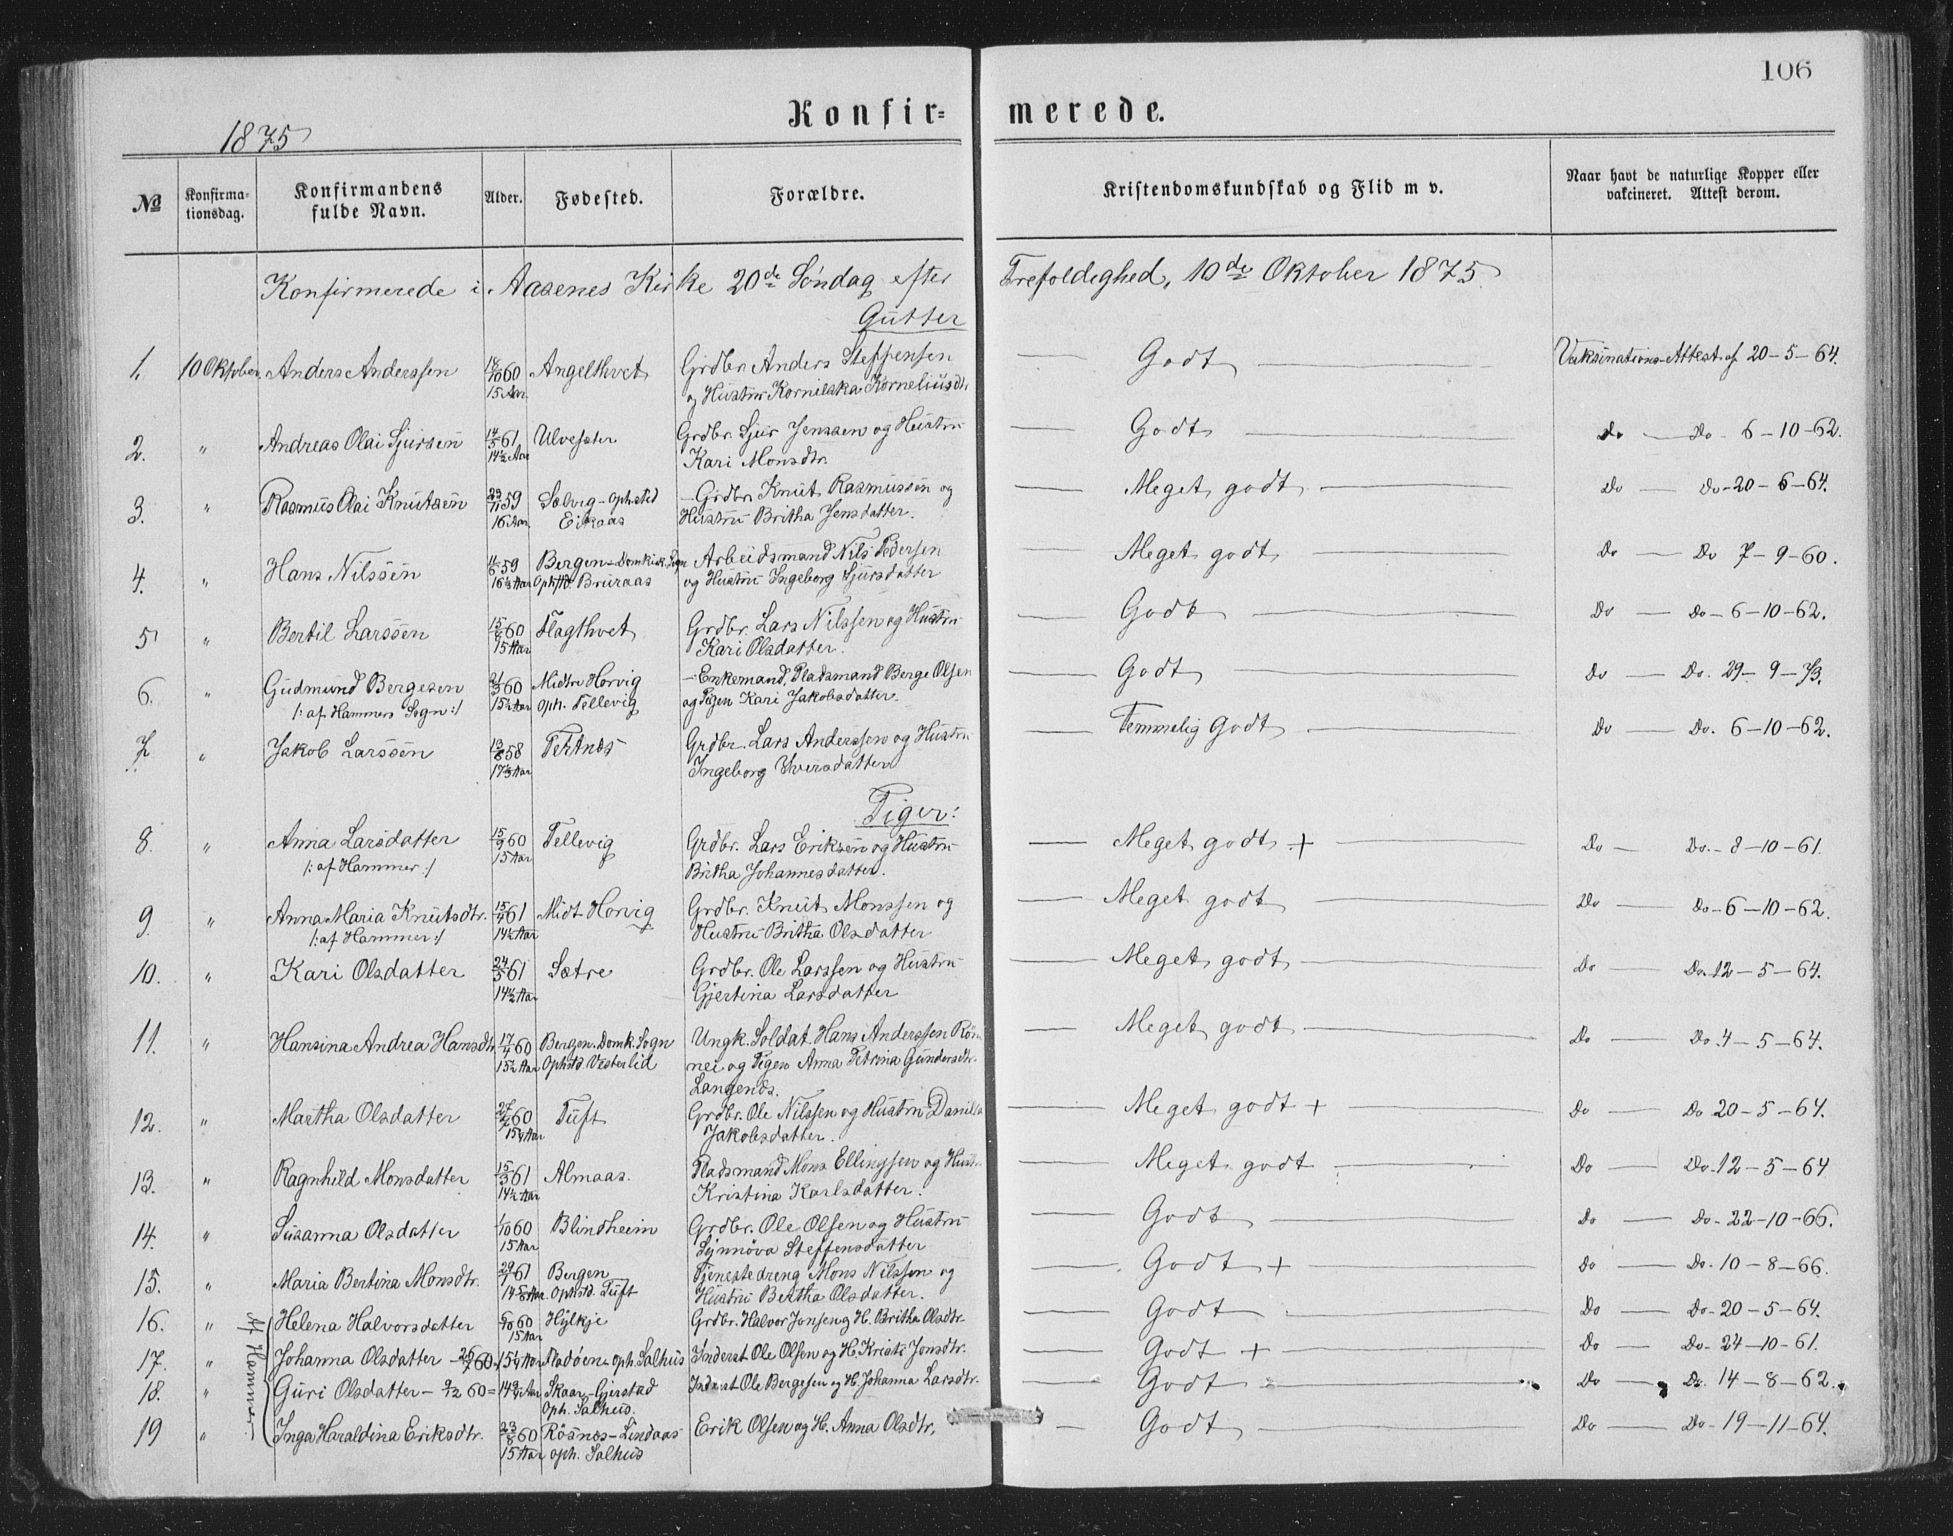 106
Konfir- merede.
1875
No Konfirma-tionsdag. Konfirmandens fulde Navn. Alder. Fødested. Forældre. Kristendomskundskab og Flid m v. Naar havt de naturlige Kopper eller vakcineret. Attest derom.
Konfirmerede i Aasenes Kirke 20de Søndag efter Trefoldighed, 10de Oktober 1875
Gutter
1. 10 Oktober. Anders Anderssen 60 Angelthvet Grdbr. Anders Steffensen — Godt — Vaksinations-Attest af 20-5-64.
15 Aar og Hustru Korneliusdtr.
2. " Andreas Olai Sjursen 14/5 61 Ulvesæter Grdbr. Sjur Jenssen og Hustru — Godt — Do — Do - 6-10-62.
14½ Aar Kari Monsdtr.
3. " Rasmus Olai Knutsen 59 Sælvig - Ophsted - Grdbr. Knut Rasmussen og — Meget godt — Do — Do - 20-6-64.
16 Aar Eikaas Hustru Britha Jensdatter.
4. " Hans Nilssen 59 Bergen - Domkirk. Sogn Arbeidsmand Nils Pedersen — Meget godt — Do — Do 7-9-60.
Aar Ophstd. Bruraas og Hustru Ingeborg Sjursdatter
5 " Bertil Larssen 60 Flagthvet Grdbr. Lars Nilssen og Hustru — Godt — Do — Do - 6-10-62.
15 Aar Kari Olsdatter.
6. " Gudmund Bergesen 60 Midtre Horvig - Enkemand, Pladsmand Berge Olsen — Godt — Do — Do. 29-9-73.
/: af Hammers Sogn :/ 15½ Aar oph. Tellevig og Pigen Kari Jakobsdatter.
7. " Jakob Larssen 58 Tertnes Grdbr. Lars Anderssen og Hustru — Temmelig Godt — Do — Do. 6-10-62.
Aar Ingeborg Iversdatter
Piger:
8. " Anna Larsdatter 15/9 60 Tellevig Grdbr. Lars Eriksen og Hustru — Meget godt + — Do — Do. - 8-10-61.
/: af Hammer :/ 15 Aar Britha Johannesdatter.
9 " Anna Maria Knutsdtr. 61 Midt Horvig Grdbr. Knut Monssen og — Meget godt — Do — Do - 6-10-62.
/: af Hammer :/ 14½ Aar Hustru Britha Olsdatter
10. " Kari Olsdatter 24/3 61 Sætre Grdbr. Ole Larssen og Hustru — Meget godt — Do — Do. 12-5-64.
14½ Aar Gjertina Larsdatter
11. " Hansina Andrea Hansdtr. 60 Bergen. Domk. Sogn Ungk. Soldat Hans Anderssen Røn- — Meget godt — Do — Do. 4-5-64.
15½ Aar Ophstd. Vesterlid nei og Pigen Anna Petrina Gundersdtr.
12. " Martha Olsdatter 60 Tuft Grdbr. Ole Nilssen og Hustru Danilla — Meget godt + — Do — Do 20-5-64.
Aar Jakobsdatter.
13. " Ragnhild Monsdatter 15/3 61 Almaas. Pladsmand Mons Ellingsen og Hustr. — Meget godt — Do — Do. 12-5-64
14½ Aar Kristina Karlsdatter.
14. " Susanna Olsdatter 60 Blindheim Grdbr. Ole Olsen og Hustru — Godt — Do — Do - 22-10-66.
15 Aar Synnøva Steffensdatter
15. " Maria Bertina Monsdtr. 29/1 61 Bergen Tjenestedreng Mons Nilssen og — Godt + — Do — Do. 10-8-66.
Aar Ophstd. Tuft Hustru Bertha Olsdatter.
af Hammer
16. " Helena Halvorsdatter 60 Hylkje Grdbr. Halvor Jonsen og H. Britha Olsdtr. — Godt — Do — Do - 20-5-64.
15 Aar
17. " Johanna Olsdatter - 60. 15¼ Aar Fladøen oph. Salhus Inderst Ole Olsen og H. Jonsdtr. — Godt + — Do — Do. 24-10-61.
18. " Guri Olsdatter - 60 = 14 Aar Skaar - Gjerstad Inderst Ole Bergesen og H. Johanna Larsdtr. — Godt — Do — Do. 14-8-62.
Oph. Salhus.
19 " Inga Haraldina Eriksdtr. 60 Røsnes - Lindaas Erik Olsen og H. Anna Olsdtr. — Godt — Do — Do - 19-11-64.
15 Aar oph. Salhus